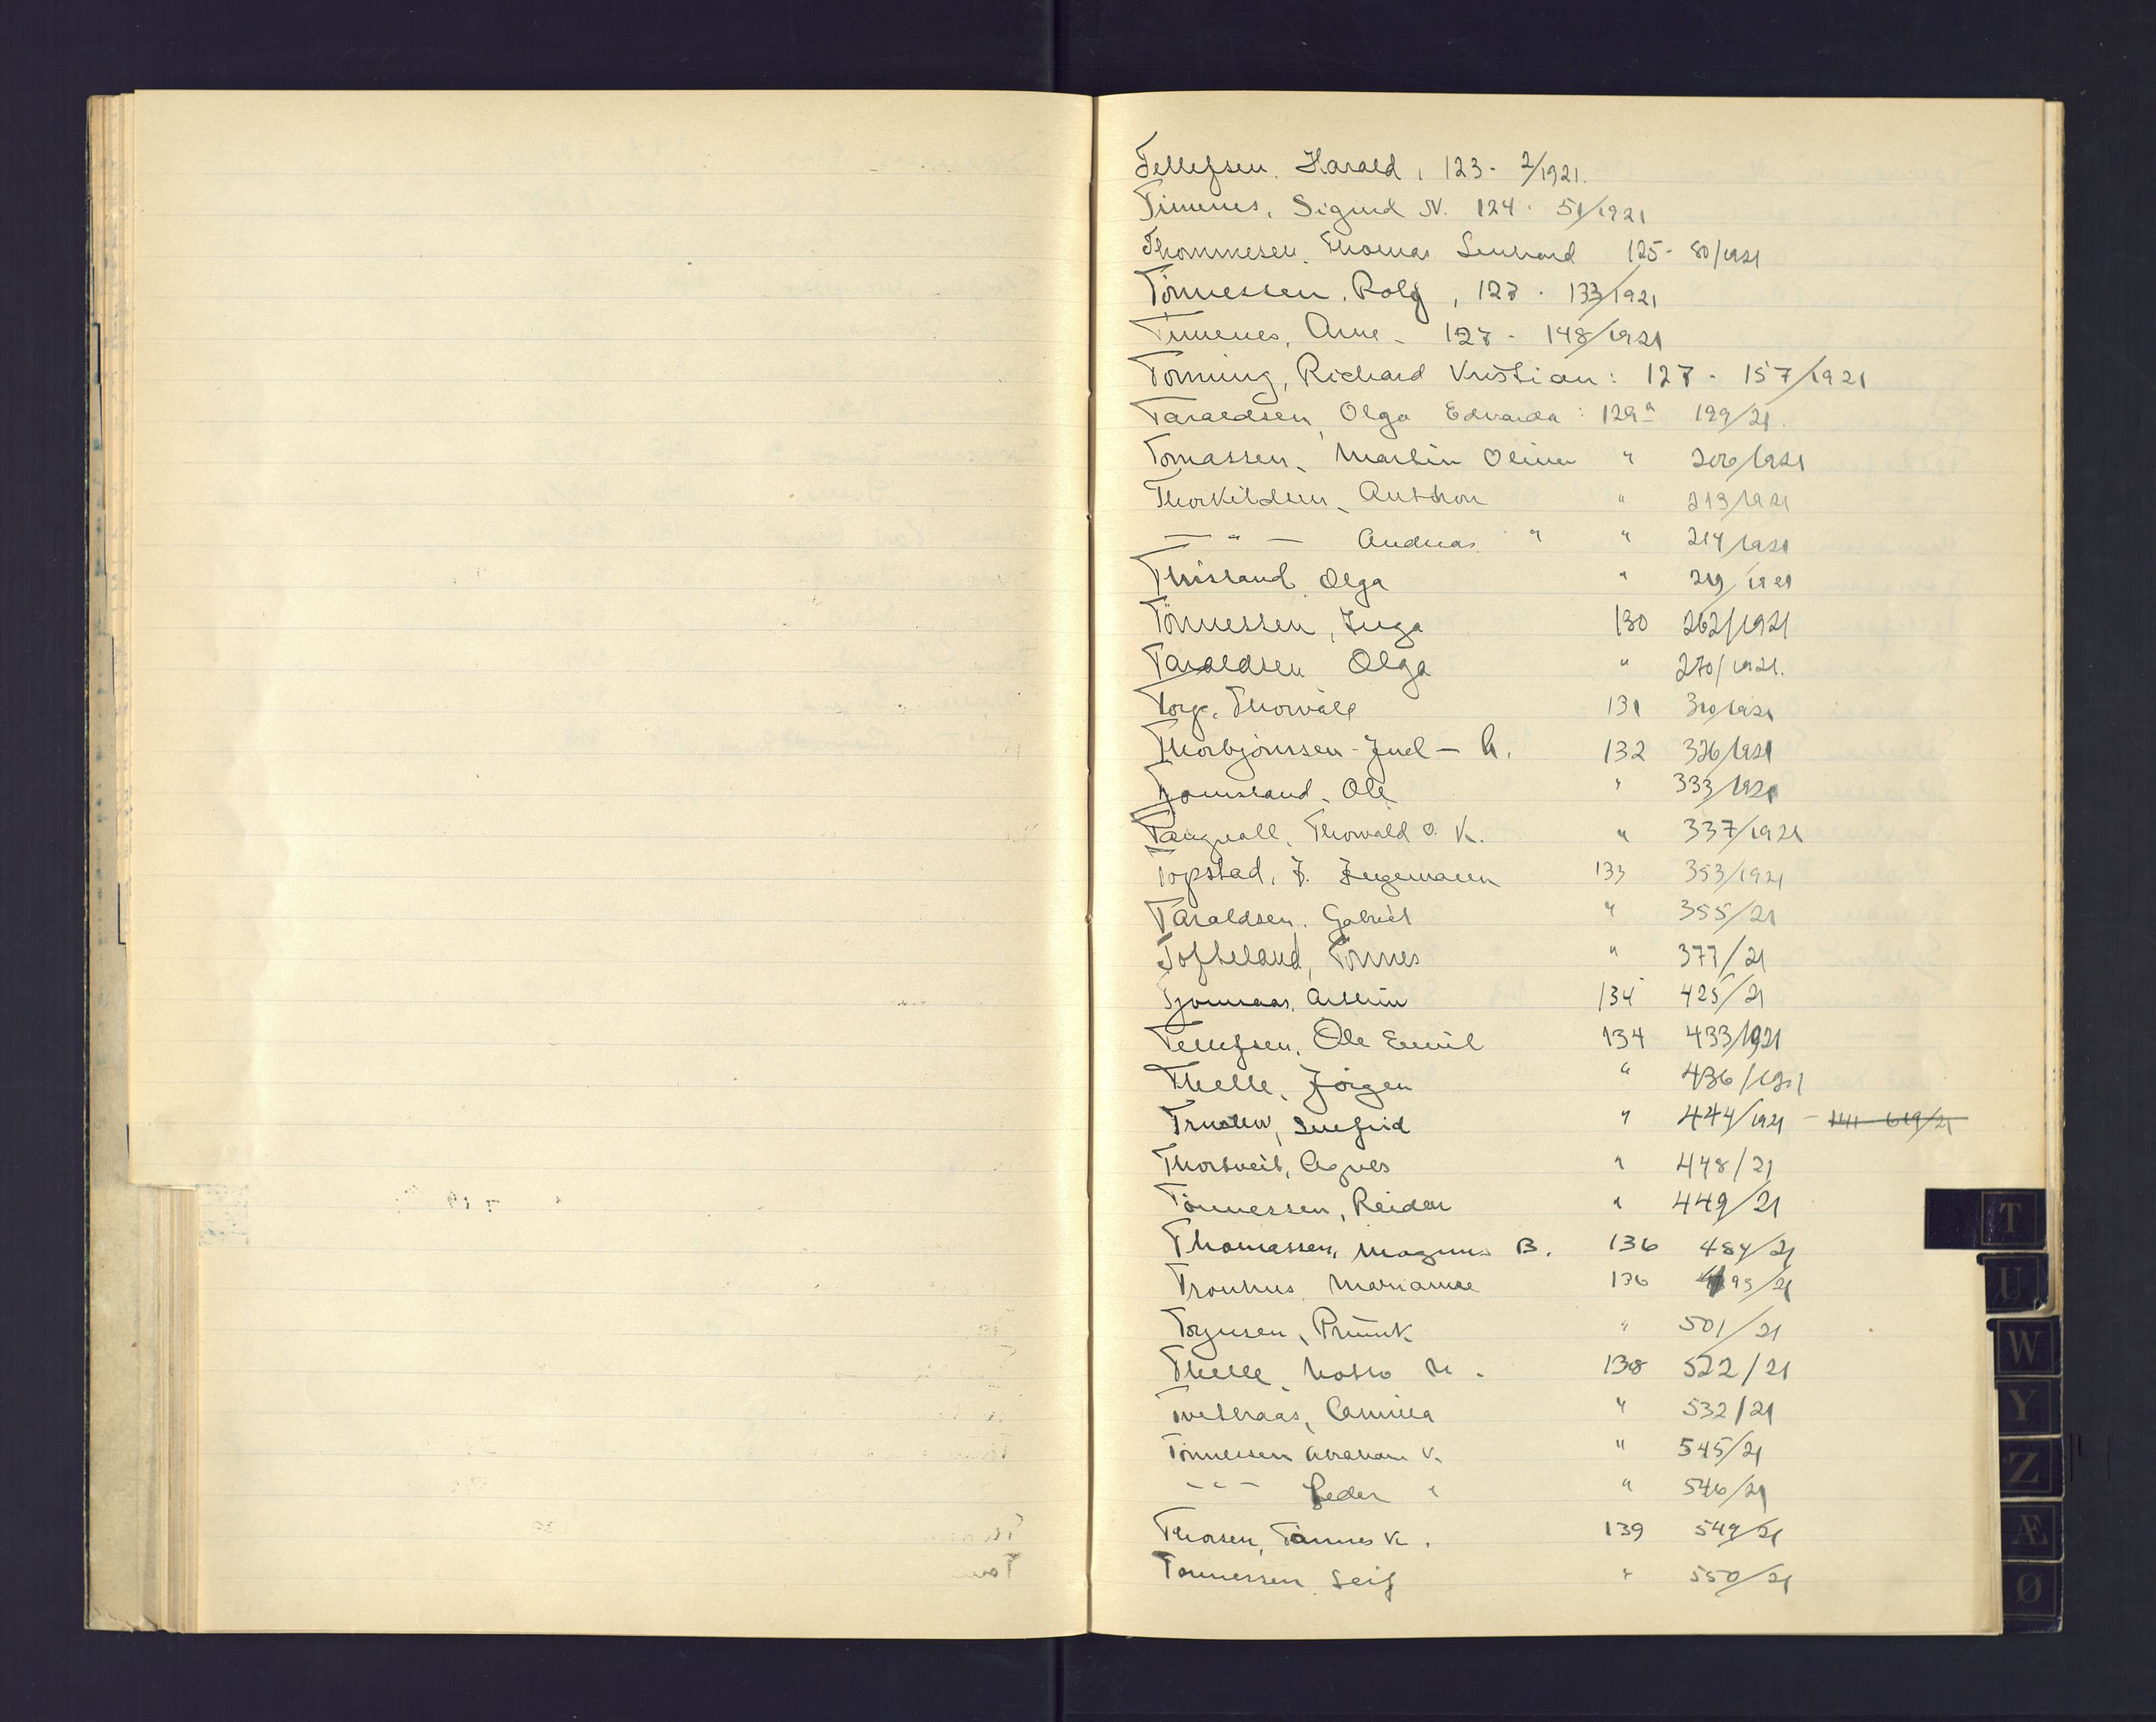 Tellefsen. Harald, 123 - 2/1921.
Timenes, Sigurd N. 124 - 51/1921
Thommesen. Thomas Lennard 125 - 80/1921
Tönnessen. Rolf, 127 - 133/1921
Timenes, Arne - 127 - 148/1921
Tönning, Richard Kristian: 127 - 157/1921
Taraldsen, Olga Edvarda: 129a 199/21.
Tomassen, Martin Oliver " 206/1921
Thorkildsen, Anthon " 213/1921
— " — Andreas " " 214/1921
Olga " 219/1921
Tönnessen, Inga 130 262/1921
Taraldsen Olga " 270/1921.
Torp. Thorvald 131 310/1921
Thorbjörnsen - Juel - A. 132 326/1921
Tjomsland, Ole " 333/1921
Tangvall, Thorvald O. K. " 337/1921
Topstad, J. Ingemann 133 353/1921
Taraldsen. Gabriel " 355/21
Tofteland, Tönnes " 377/21
Tjomaas. 134 425/21
Tellefsen, Ole Emil 134 433/1921
Thelle, Jörgen " 436/1921
444/1921 - 141 - 619/21
Thortveit, Agnes " 448/21
Tönnessen, Reidar " 449/21
Thomassen, Magnus B. 136 484/21
Marianne 136 495/21
501/21
Thelle, M. 138 522/21
Tveteraas, Camilla " 532/21
Tönnessen Abraham V. " 545/21
- " - Peder " " 546/21
Thorsen, Tönnes K. 139 549/21
Tönnessen Leif " 550/21
T
U
W
Y
Z
Æ
Ø